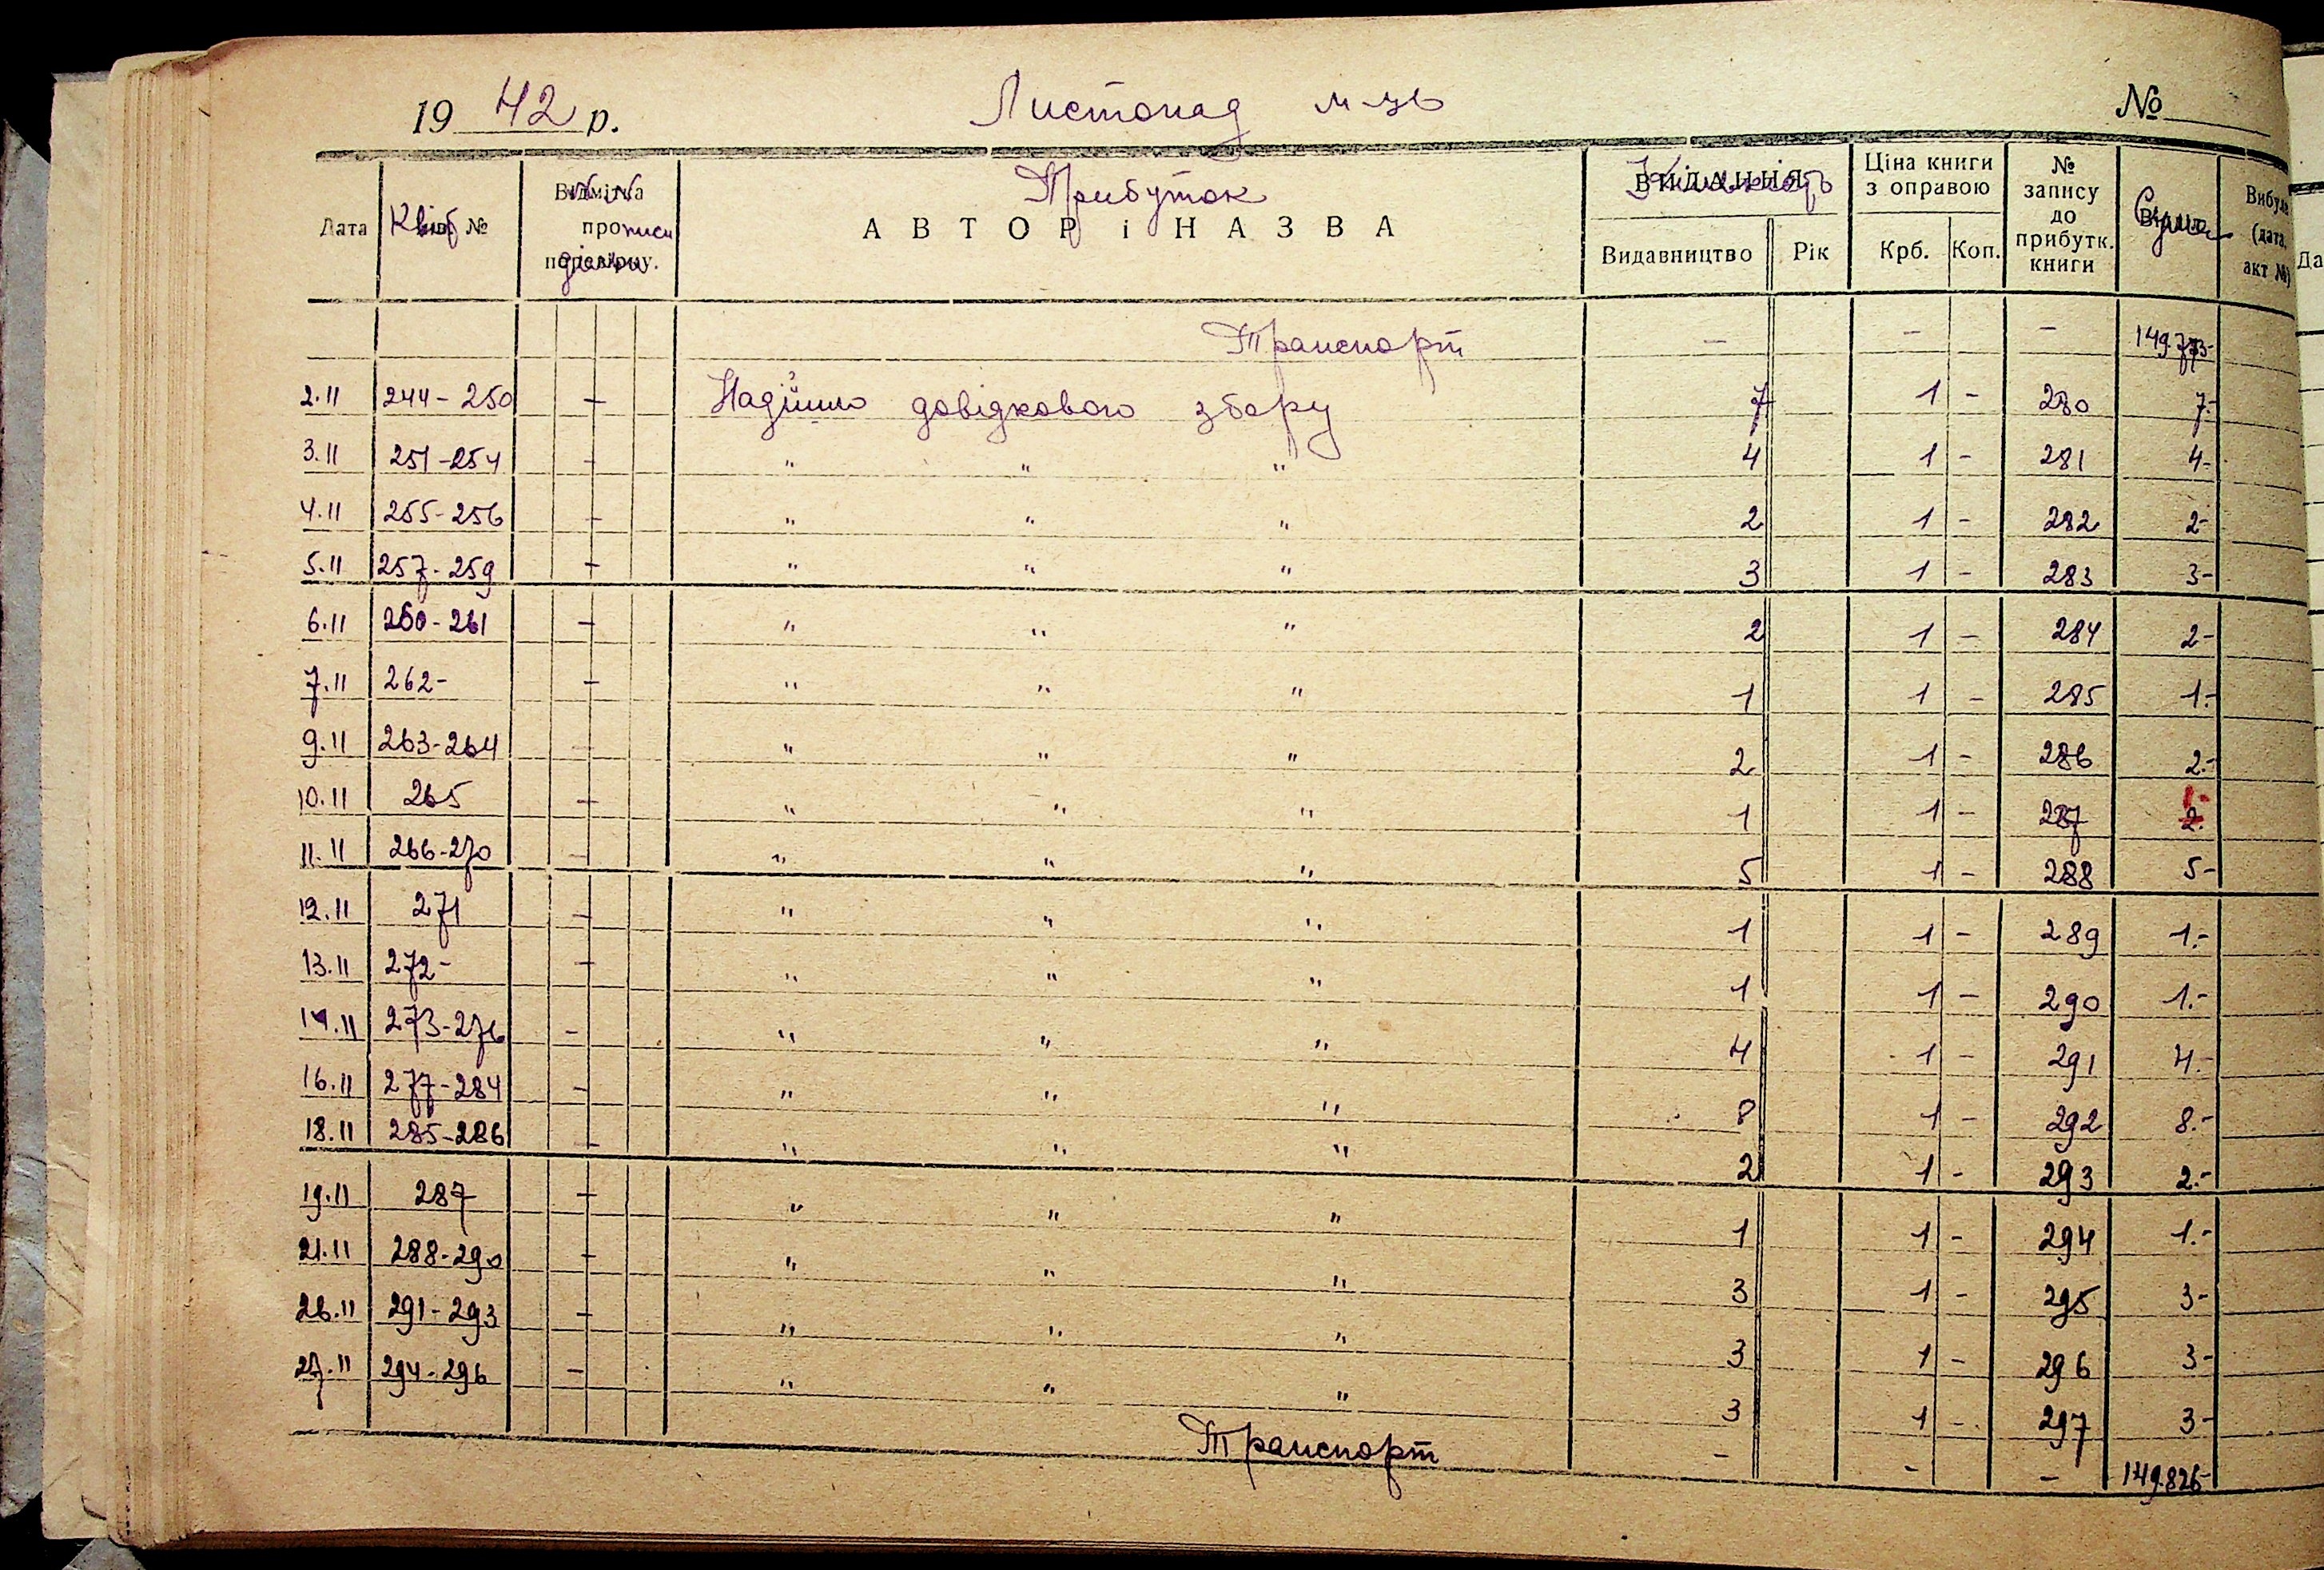 19 42 р. Листопад м-ць №
Дата Квит № Відмітка про перевірку. №№ прописи Прибуток АВТОР і НАЗВА ВИДАННЯ Кількість Видавництво Рік Ціна книги з оправою Крб. Коп. № запису до прибутк. книги Сума Вибула (дата, акт №) Да
Транспорт — — — 149.773-
2.11 244-250 — Надійшло довідкового збору 7 1 - 280 7.-
3.11 251-254 — " " " 4 1 - 281 4-
4.11 255-256 — " " " 2 1 - 282 2-
5.11 257-259 — " " " 3 1 - 283 3-
6.11 260-261 — " " " 2 1 - 284 2-
7.11 262- — " " " 1 1 - 285 1.-
9.11 263-264 — " " " 2 1 - 286 2.-
10.11 265 — " " " 1 1 - 287 2. 1-
11.11 266-270 — " " " 5 1 - 288 5-
12.11 271 — " " " 1 1 - 289 1.-
13.11 272- — " " " 1 1 - 290 1.-
14.11 273-276 — " " " 4 1 - 291 4.-
16.11 277-284 — " " " 8 1 - 292 8.-
18.11 285-286 — " " " 2 1 - 293 2.-
19.11 287 — " " " 1 1 - 294 1.-
21.11 288-290 — " " " 3 1 - 295 3-
26.11 291-293 — " " " 3 1 - 296 3-
27.11 294-296 — " " " 3 1 - 297 3-
Транспорт - - - 149.826-